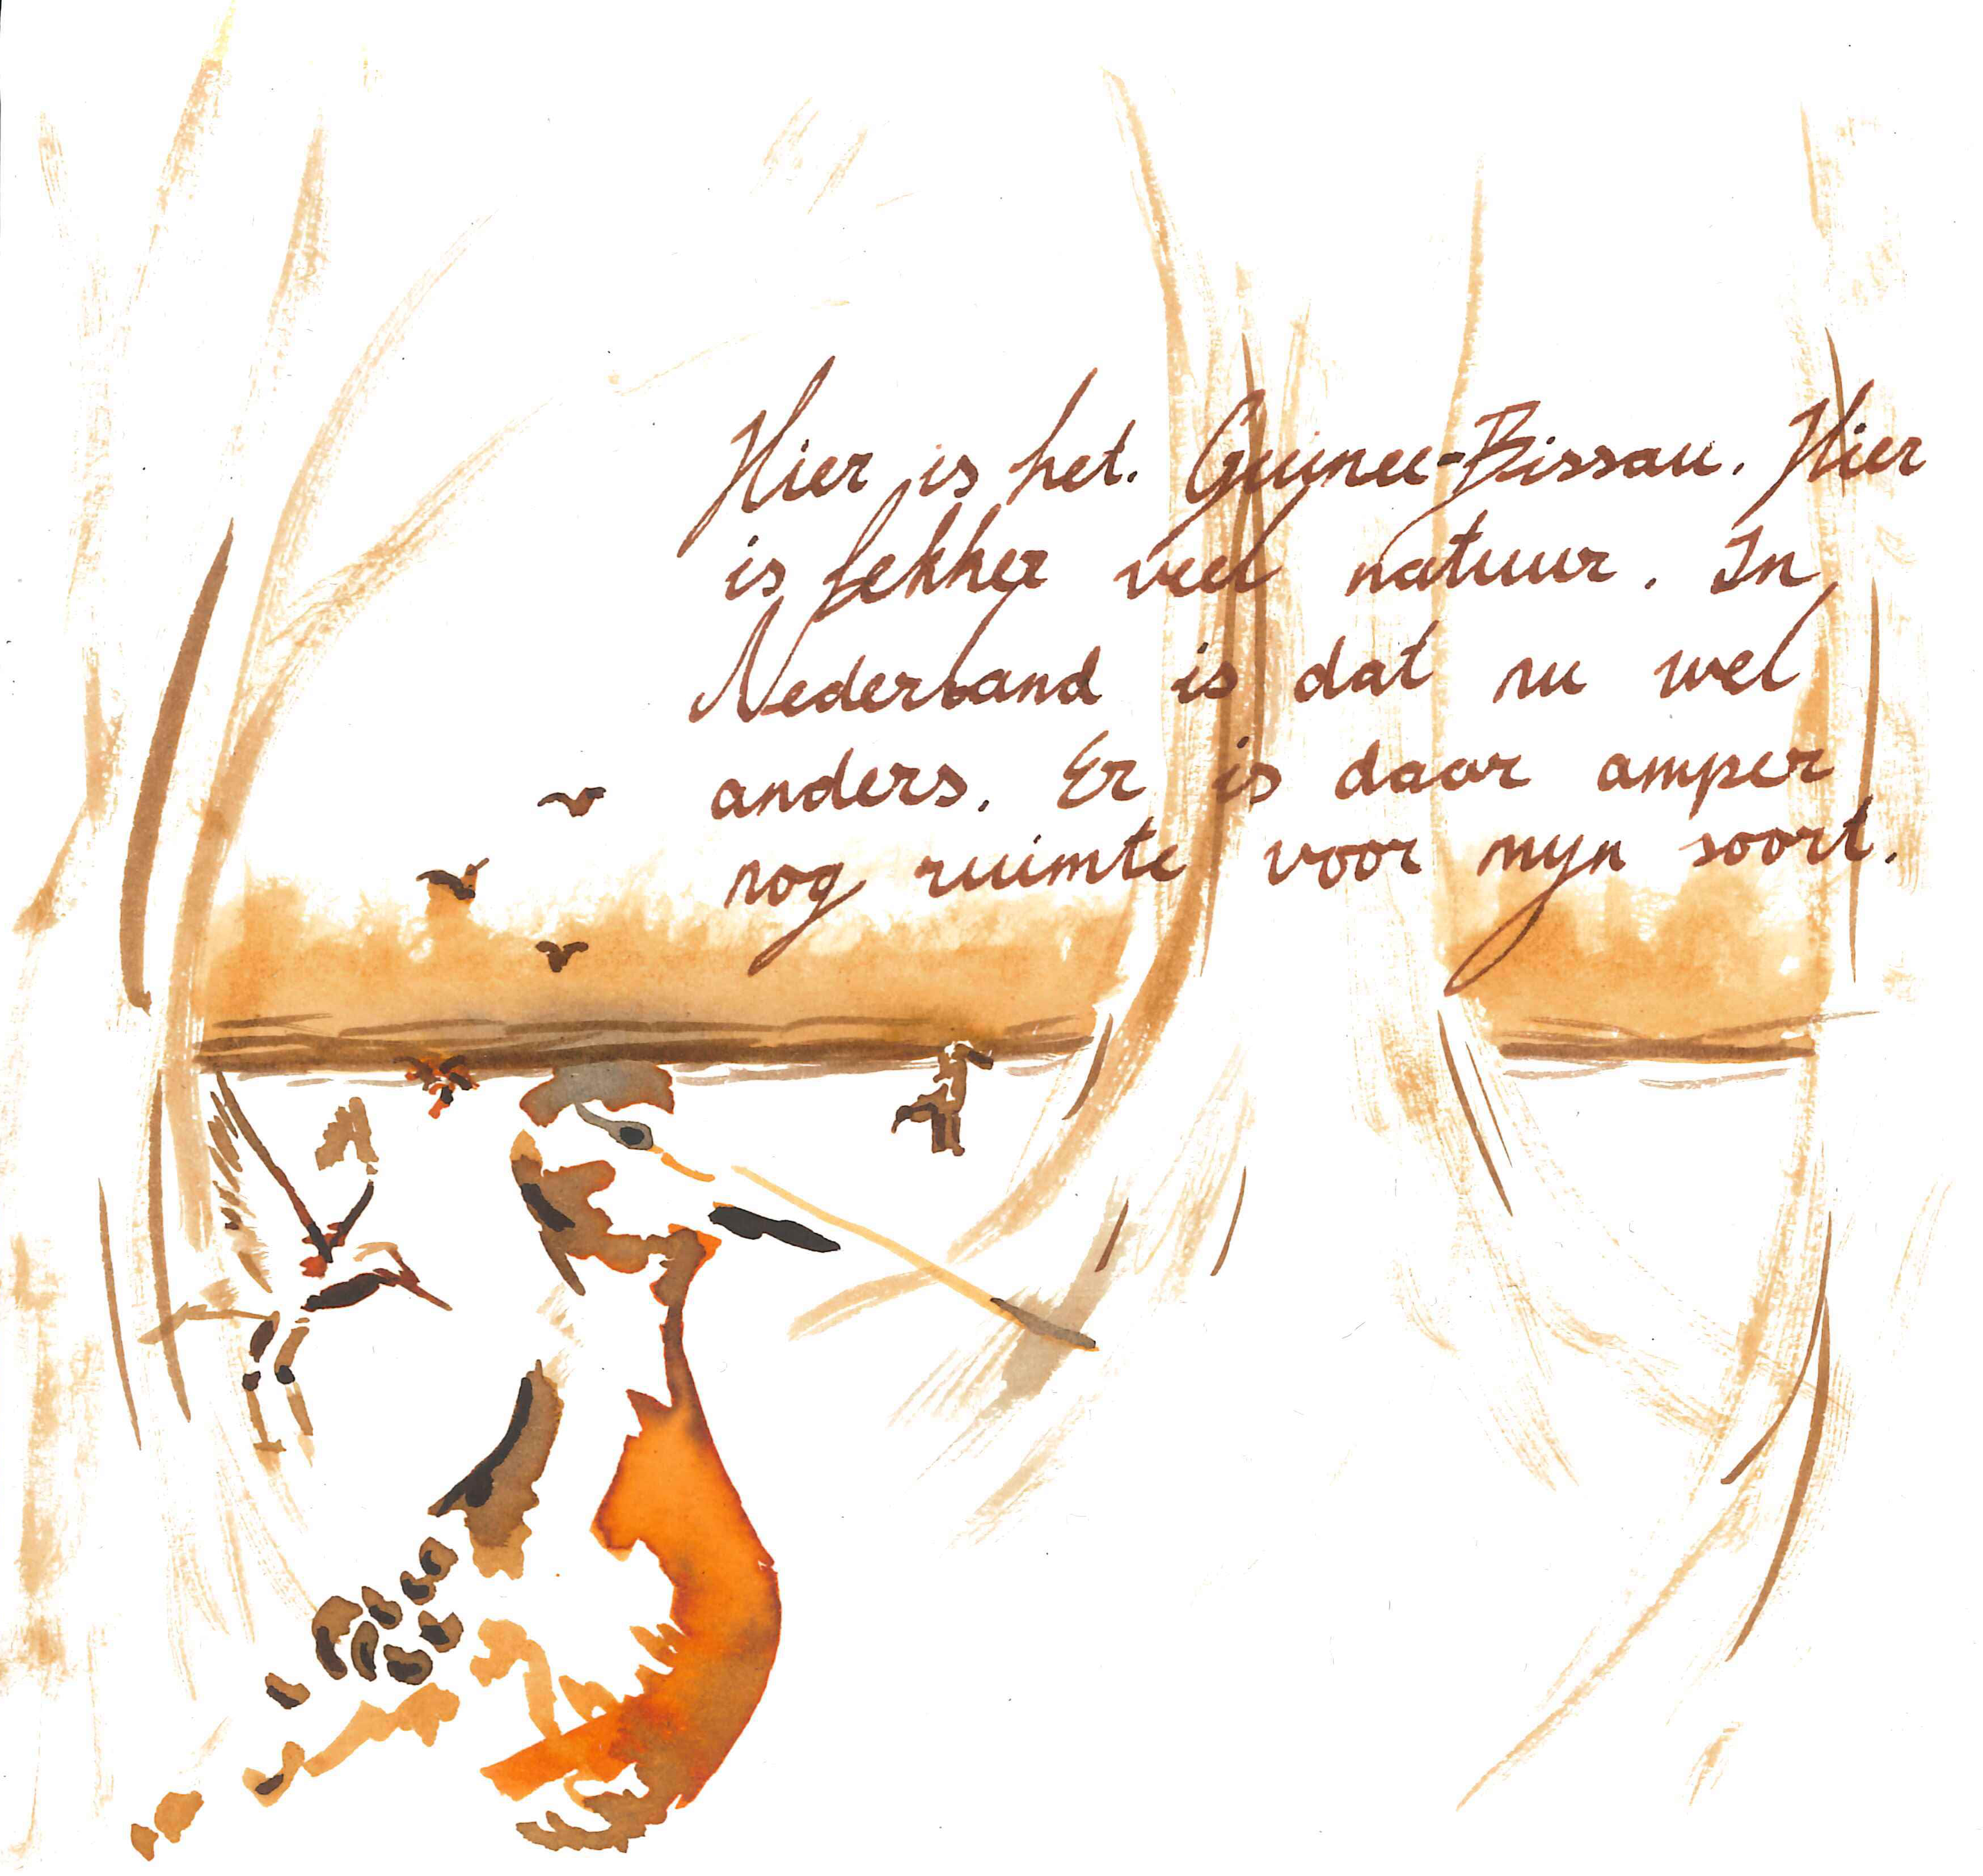 Hier is het. Guinee-Bissau. Hier
is lekker veel natuur. In
Nederland is dat nu wel
anders. Er is daar amper
nog ruimte voor myn soort.